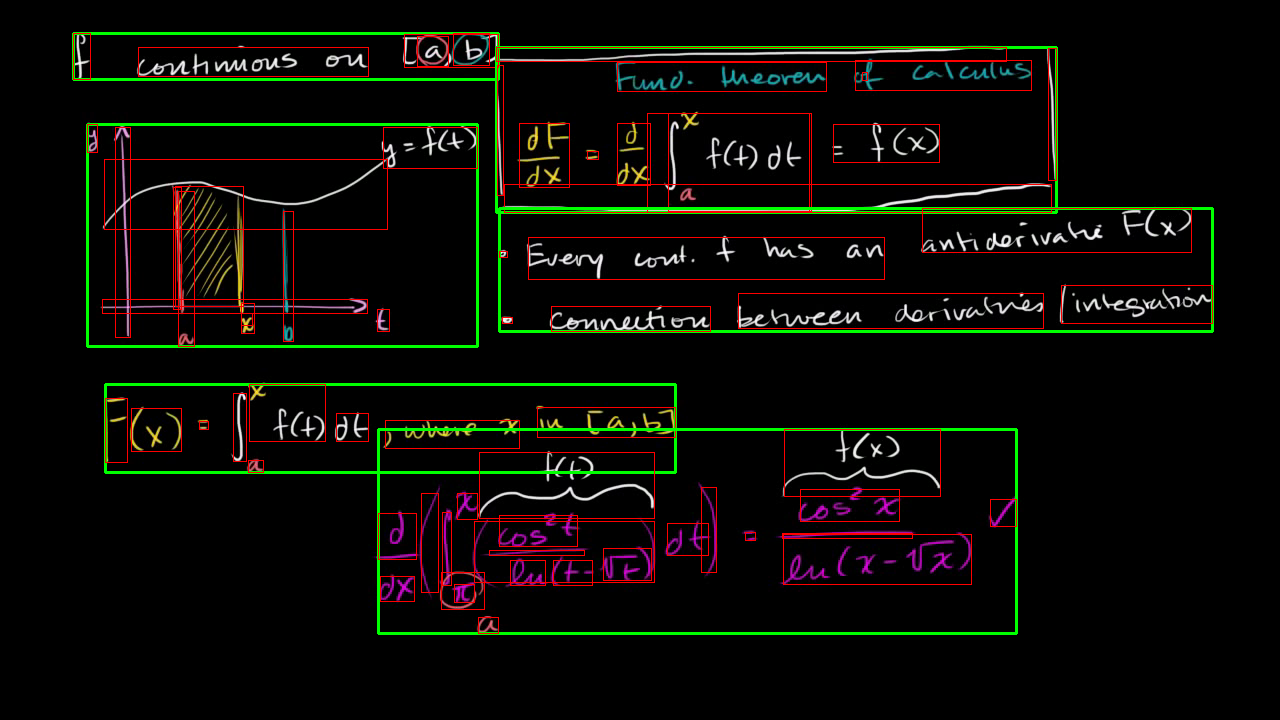 f continuous on [a, b]
Fund. theorem of calculus
dF/dx = d/dx ∫_a^x f(t) dt = f(x)
y
y = f(t)
a x b t
• Every cont. f has an antiderivative F(x)
• connection between derivatives / integration
F(x) = ∫_a^x f(t) dt, where x in [a,b]
f(t) f(x)
d/dx (∫_π^x (cos² t / ln(t-√t)) dt) = cos² x / ln(x-√x) ✓
a